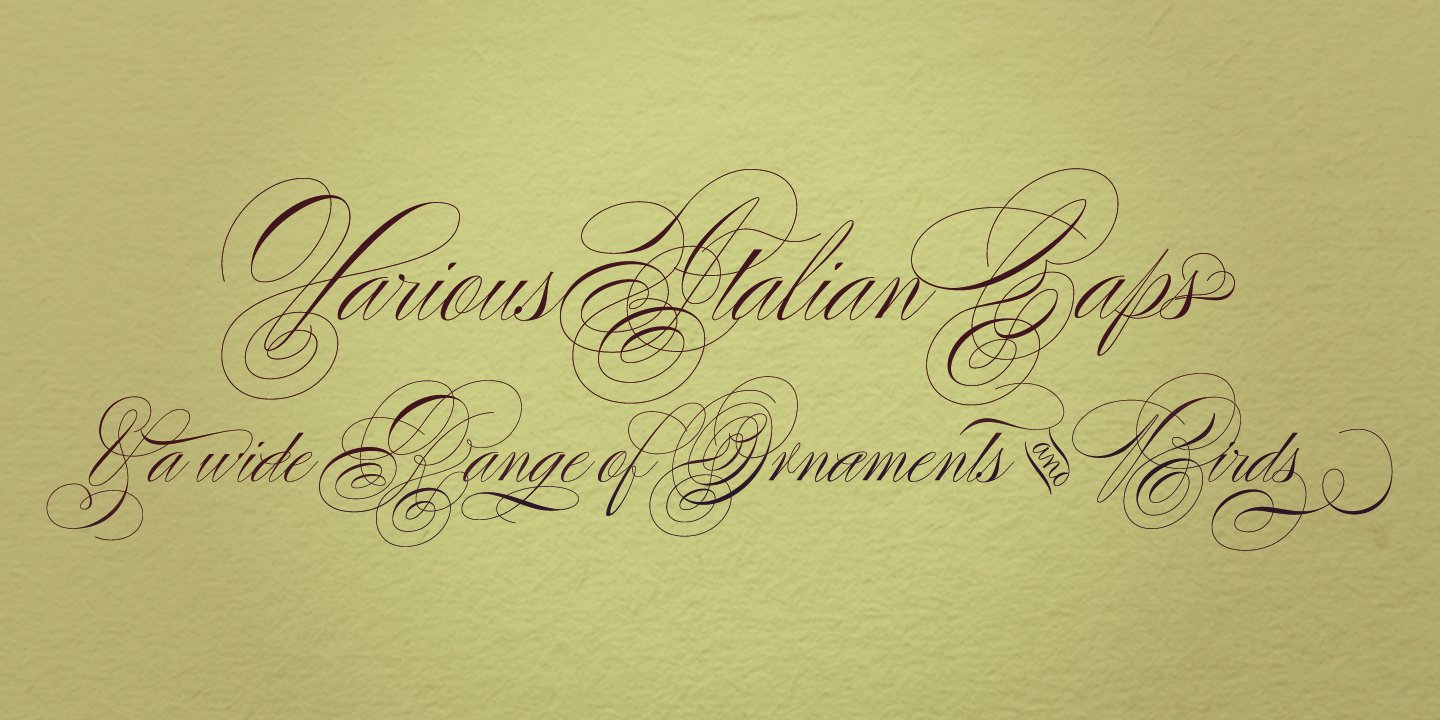 Various Italian Caps
& a wide Range of Ornaments and Birds